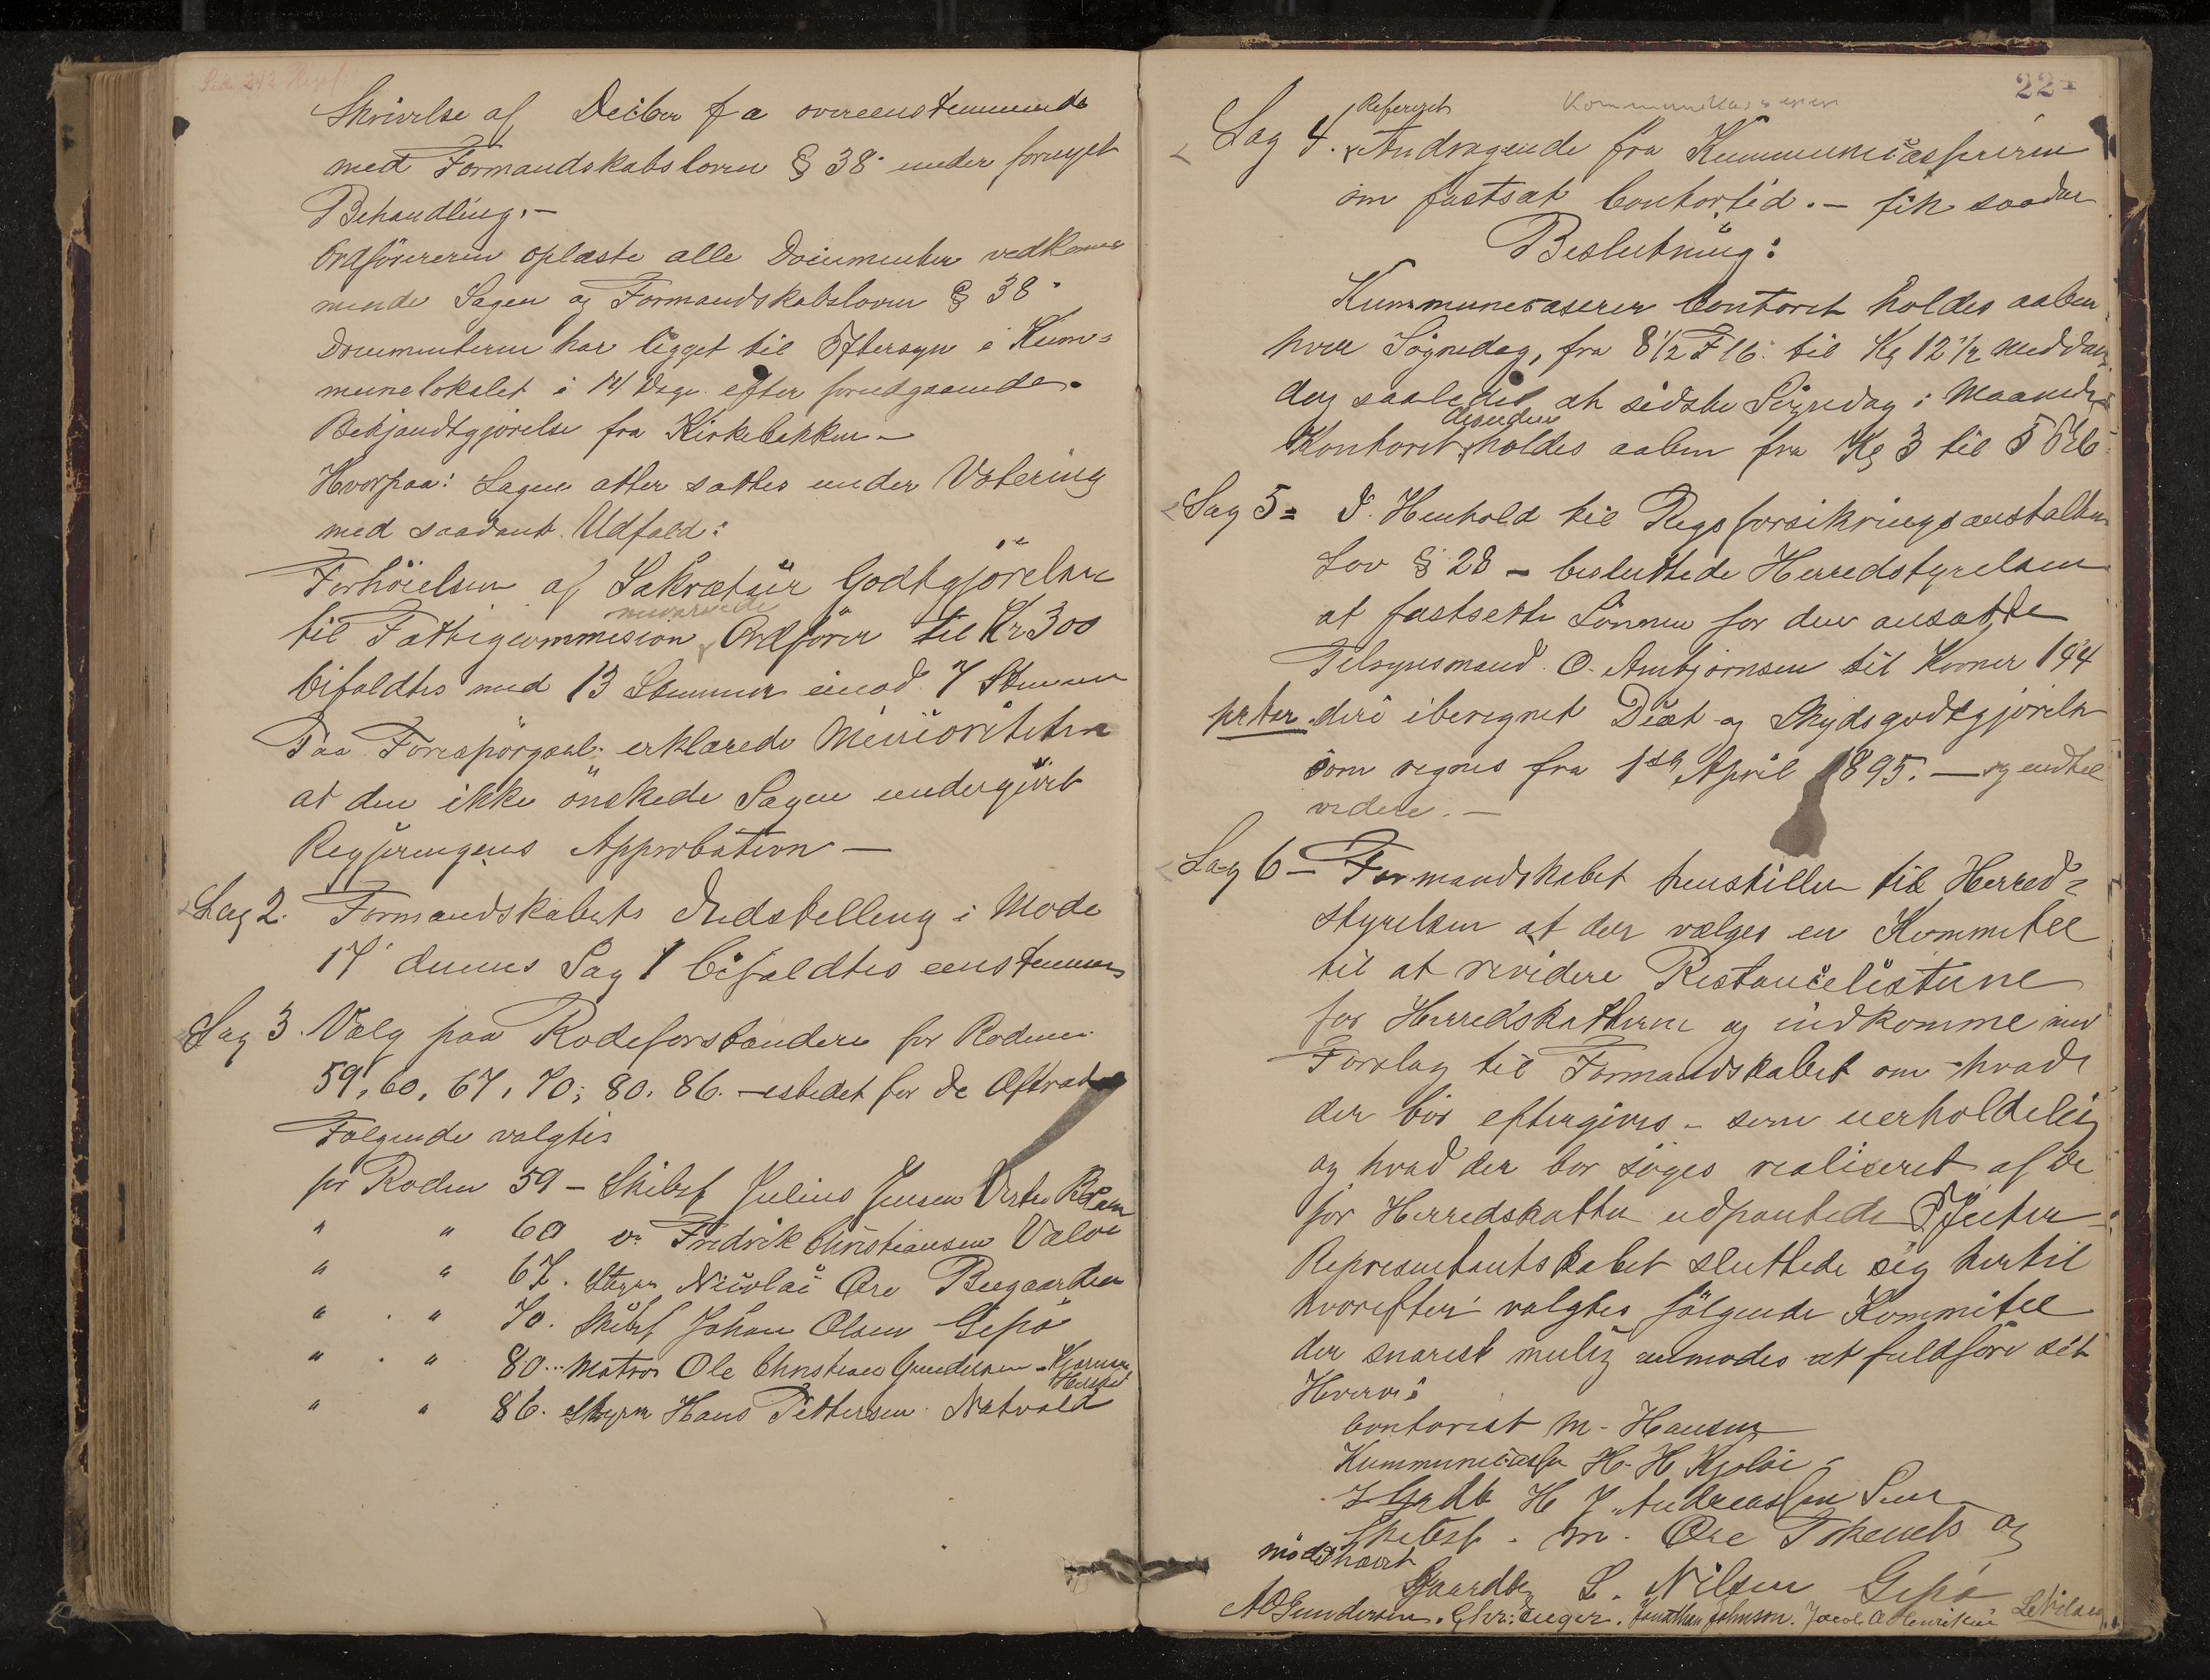 Skrivelse af Decber f a overeenstemmende
med Formandskabsloven § 38 under fornyet
Behandling.-
Ordförereren oplæste alle Documenter vedkom
mende Sagen og Formandskabsloven § 38
Documenterne har ligget til Eftersyn i Kum=
munelokalet i 14 Dage efter forudgaaende
Bekjandtgjörelse fra Kirkebakken -
Hvorpaa: Sagen atter sattes under Votering
med saadant Udfald:
Forhöielsen af Sakretær Godtgjörelsen
nuværende
til Fattigcommision Ordförer til Kr 300
bifaldtes med 13 Stemmer imod 7 Stemmer
Paa Forespörgsel erklærede Minioriteten
at den ikke önskede Sagen undergivet
Regjeringens Approbation -
Sag 2. Formandskabets Indstelling i Mode
17 dennes Sag 1 bifaldtes eenstemmes
Sag 3. Valg paa Rodeforstandere for Rodene
59, 60, 67, 70, 80, 86. - istedet for de Aftrædt
Folgende valgtes
for Roden 59 - Skibsf Julius Jensen Vestre
" " 60 Fredrik Christiansen Valöe
" " 67. Styrm Nicolai Öre Buegaarden
" " 70. Skibsf Johan Olsen Gipö
" " 80 .. Matros Ole Christian Gundersen - Kjærnes
" " 86. Styrm Hans Pettersen Natvold
Referert Kommunekassereren
Sag 4. Andragende fra Kummunecasereren
om fastsat Contortid. - fik saadan
Beslutning:
Kummunecaserer Contoret holdes aaben
hver Sögnedag, fra 8 1/2 F til Kl 12 1/2 Midda
dag saaledes at sidste Sögnedag i Maaneden
desuden
Kontoret holdes aaben fra Kl 3 til 5
Sag 5 = I Henhold til Rigsforsikringsanstalten
Lov § 28 - besluttede Herredstyrelsen
at fastsette Lönnen for den ansatte
Tilsynsmand O. Ambjörnsen til Kroner 144
pr ter deri iberegnet Diæt og Skydsgodtgjörelse
som regnes fra 1ste April 1895. - og indtil
videre. -
Sag 6 - Formandskabet henstiller til Herred=
styrelsen at der vælges en Kommitee
til at revidere Restancelisterne
for Herredskatterne og indkomme med
Forslag til Formandskabet om hvad
der bör eftergives - som uerholdelig
og hvad der bör söges realiseret af de
for Herredskatten udpantede Effecter
Representantskabet sluttede sig hertil
hvorefter valgtes fölgende Kommitee
der snarest mulig anmodes at fuldföre sit
Hverv:
Contorist M. Hansen
Kummunecasser H. H. Kjolöi
H J. Andreassen
Skibsf. M. Öre Tokenes og
Gaardbr L. Nilsen Gipö
möde hævet
A O Gundersen. Chr: Unger. Jonathan Johnson. Jacob A Henriksen L Nilsen